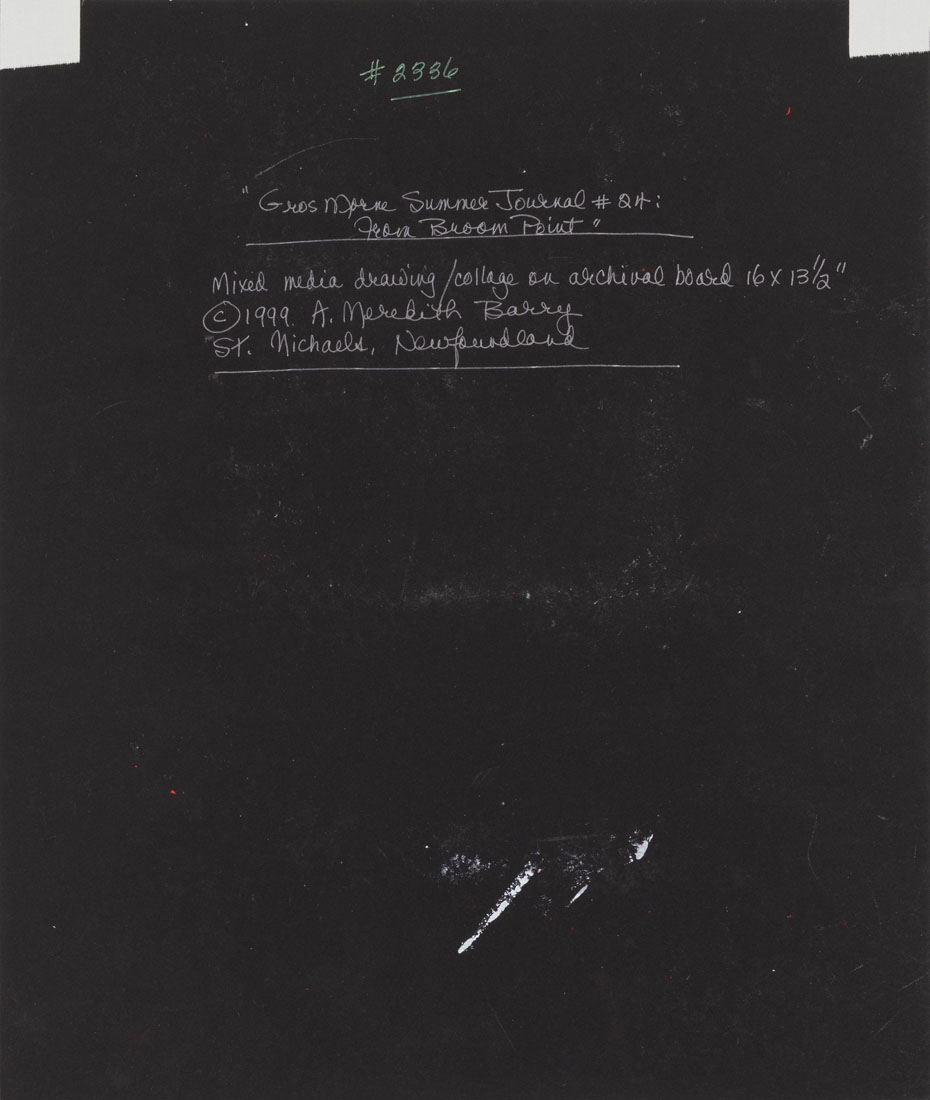 # 2336
"Gros Morne Summer Journal # 24:
From Broom Point"
Mixed media drawing/collage on archival board 16 x 13 1/2"
© 1999. A. Meredith Barry
St. Michaels, Newfoundland